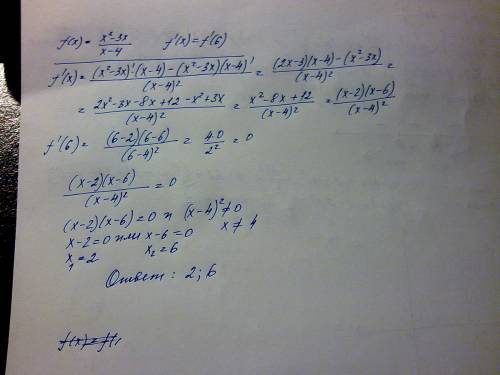 f(x) = (x²-3x)/(x-4)   f'(x) = f'(6)
f'(x) = ((x²-3x)'(x-4)-(x²-3x)(x-4)')/(x-4)² = ((2x-3)(x-4)-(x²-3x))/(x-4)² =
= (2x²-3x-8x+12-x²+3x)/(x-4)² = (x²-8x+12)/(x-4)² = ((x-2)(x-6))/(x-4)²
f'(6) = ((6-2)(6-6))/(6-4)² = 4·0/2² = 0
((x-2)(x-6))/(x-4)² = 0
(x-2)(x-6)=0 и (x-4)²≠0
x-2=0 или x-6=0   x≠4
x₁=2   x₂=6
Ответ: 2; 6